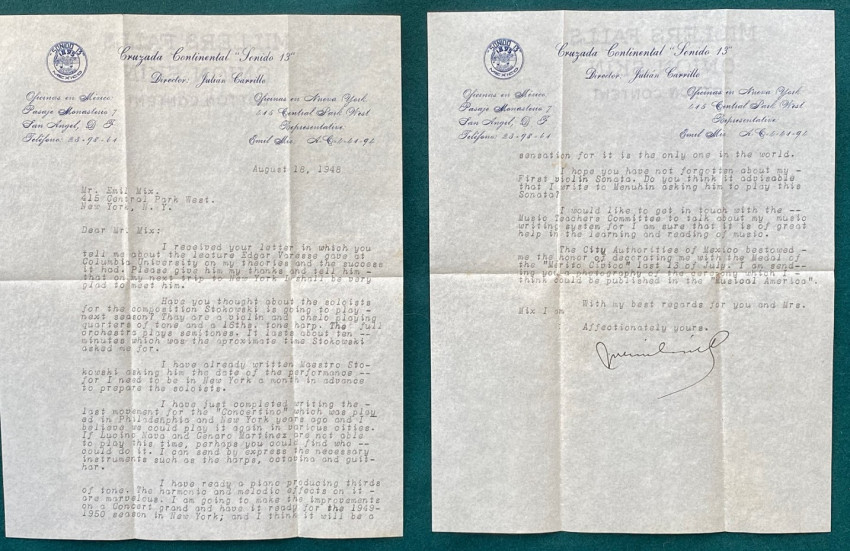 "SONIDO 13"
1895
Cruzada Continental "Sonido 13"
Director: Julián Carrillo
Oficinas en México
Pasaje Monasterio 7
San Angel, D F
Teléfono: 23-98-64
Oficinas en Nueva York
415 Central Park West
Representative
Emil Mix
August 18, 1948
Mr. Emil Mix.
415 Central Park West.
New York, N. Y.
Dear Mr. Mix:
I received your letter in which you
tell me about the lecture Edgar Varesse gave at
Columbia University on my theories and the success
it had. Please give him my thanks and tell him -
that on my next trip to New York I shall be very
glad to meet him.
Have you thought about the soloists
for the composition Stokowski is going to play -
next season? They are a violin and chelo playing
quarters of tone and a 16ths. tone harp. The full
orchestra plays semitones. It lasts about ten --
minutes which was the aproximate time Stokowski
asked me for.
I have already written Maestro Sto-
kowski asking him the date of the performance --
for I need to be in New York a month in advance
to prepare the soloists.
I have just completed writing the -
last movement for the "Concertino" which was play
ed in Philadenphia and New York years ago and I
believe we could play it again in various cities.
If Lucino Nava and Genaro Martinez are not able
to play this time, perhaps you could find who --
could do it. I can send by express the necessary
instruments such as the harps, octavina and guit-
har.
I have ready a piano producing thirds
of tone. The harmonic and melodic effects on it -
are marvelous. I am going to make the improvements
on a Concert grand and have it ready for the 1949-
1950 season in New York; and I think it will be a
"SONIDO 13"
1895
Cruzada Continental "Sonido 13"
Director: Julián Carrillo
Oficinas en México
Pasaje Monasterio 7
San Angel, D F
Teléfono: 23-98-64
Oficinas en Nueva York
415 Central Park West
Representative
Emil Mix
sensation for it is the only one in the world.
I hope you have not forgotten about my -
First violin Sonata. Do you think it advisable
that I write to Menuhin asking him to play this
Sonata?
I would like to get in touch with the --
Music Teachers Committee to talk about my music
writing system for I am sure that it is of great
help in the learning and reading of music.
The City Authorities of Mexico bestowed -
me the honor of decorating me with the Medal of
the "Mérito Civico" last 13 of July. I am send--
ing you a photography of the ceremony which I --
think could be published in the "Musical America".
With my best regards for you and Mrs.
Mix I am
Affectionately yours.